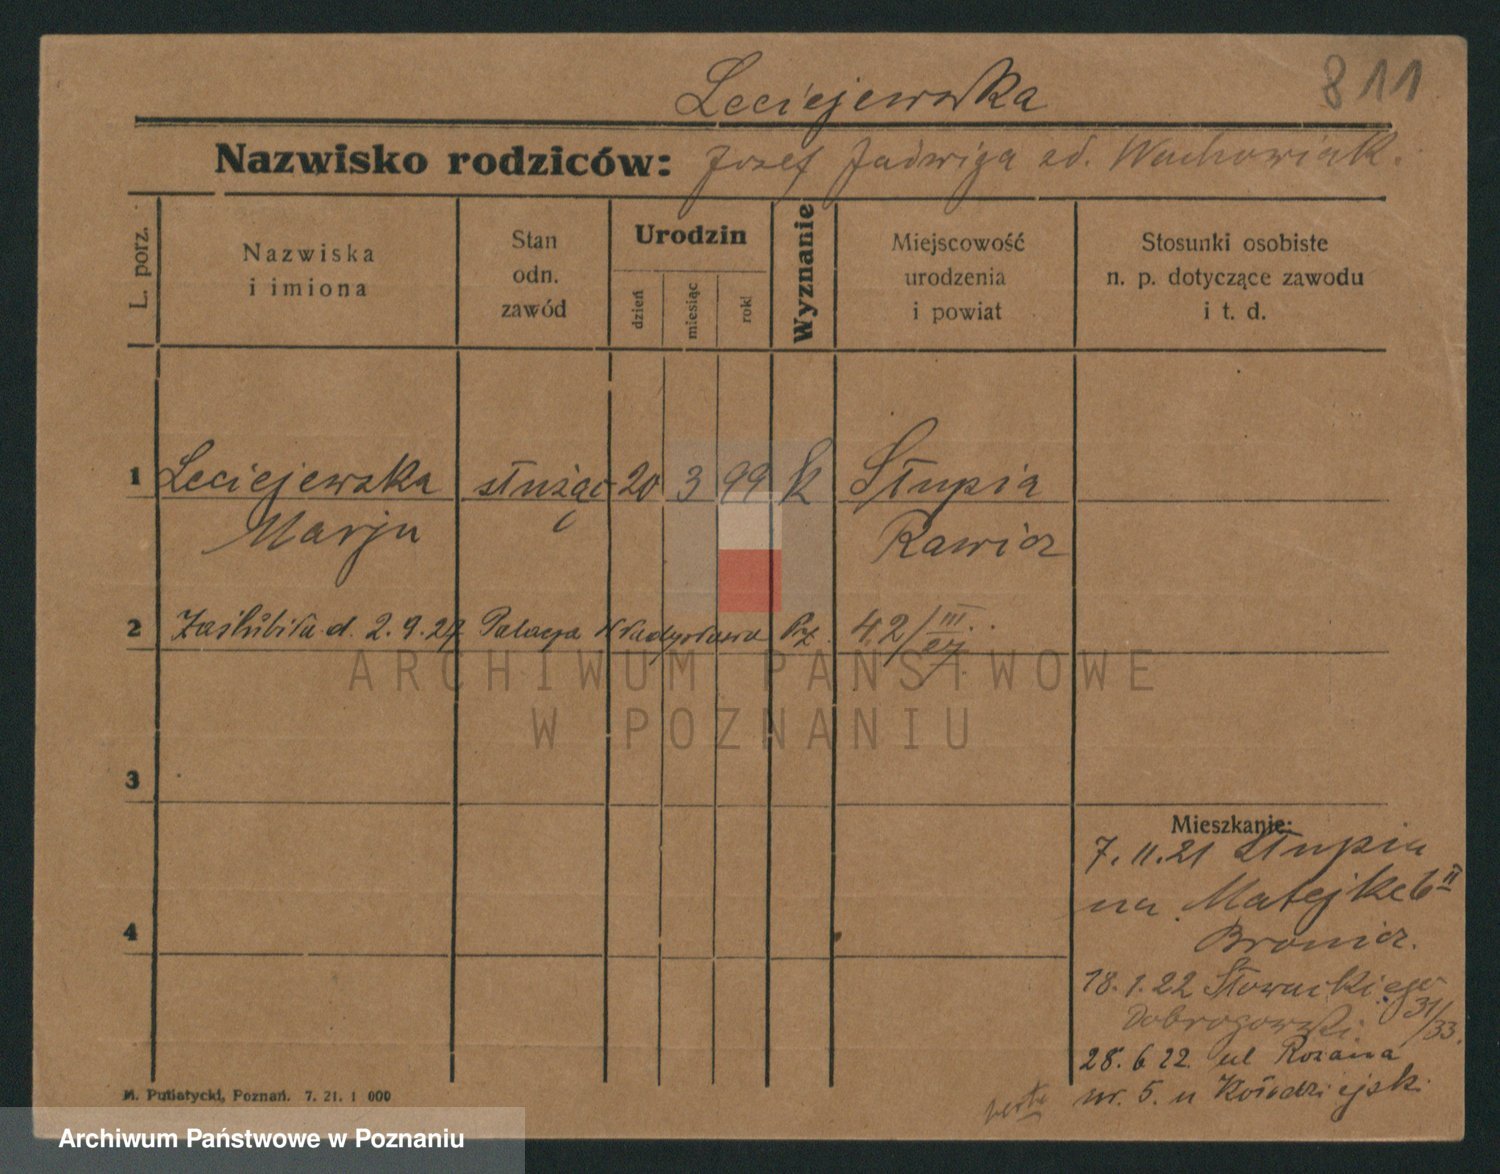 Leciejewska
811
Nazwisko rodziców: Jozef Jadwiga zd. Wachowiak.
L. porz.
Nazwiska
i imiona
Stan
odn.
zawód
Urodzin
dzień
miesiąc
rok
Wyznanie
Miejscowość
urodzenia
i powiat
Stosunki osobiste
n. p. dotyczące zawodu
i t. d.
1 Leciejewska służąc 20 3 99 k Słupia
Marja Rawicz
2 Zaślubiła d. 2.9.27 Władysława 42/III
3
4
Mieszkanie:
7.11.21 Słupia
na Matejke 6 II
Bronicz.
18.1.22 Słowackiego
31/33.
Dobrogowski
28.6.22. ul Rozana
nr. 5. u Kołodziejsk.
verte
M. Putiatycki, Poznań. 7. 21. 1 000
ARCHIWUM PAŃSTWOWE
W POZNANIU
Archiwum Państwowe w Poznaniu